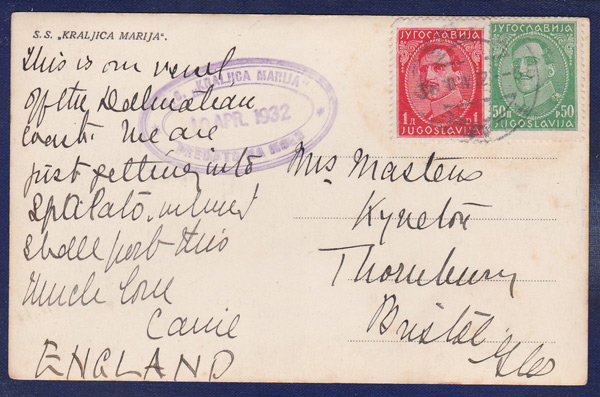 S.S. „KRALJICA MARIJA“.
This is our vessel
off the Dalmatian
coast. We are
just getting into
Spalato, where I
shall post this
Much love
Carrie
ENGLAND
S. „KRALJICA MARIJA“
10 APR. 1932
Mrs Masters
Kyneton
Thornbury
Bristol
Glos
ЈУГОСЛАВИЈА
1Д 1
JUGOSLAVIJA
ЈУГОСЛАВИЈА
50П P50
JUGOSLAVIJA